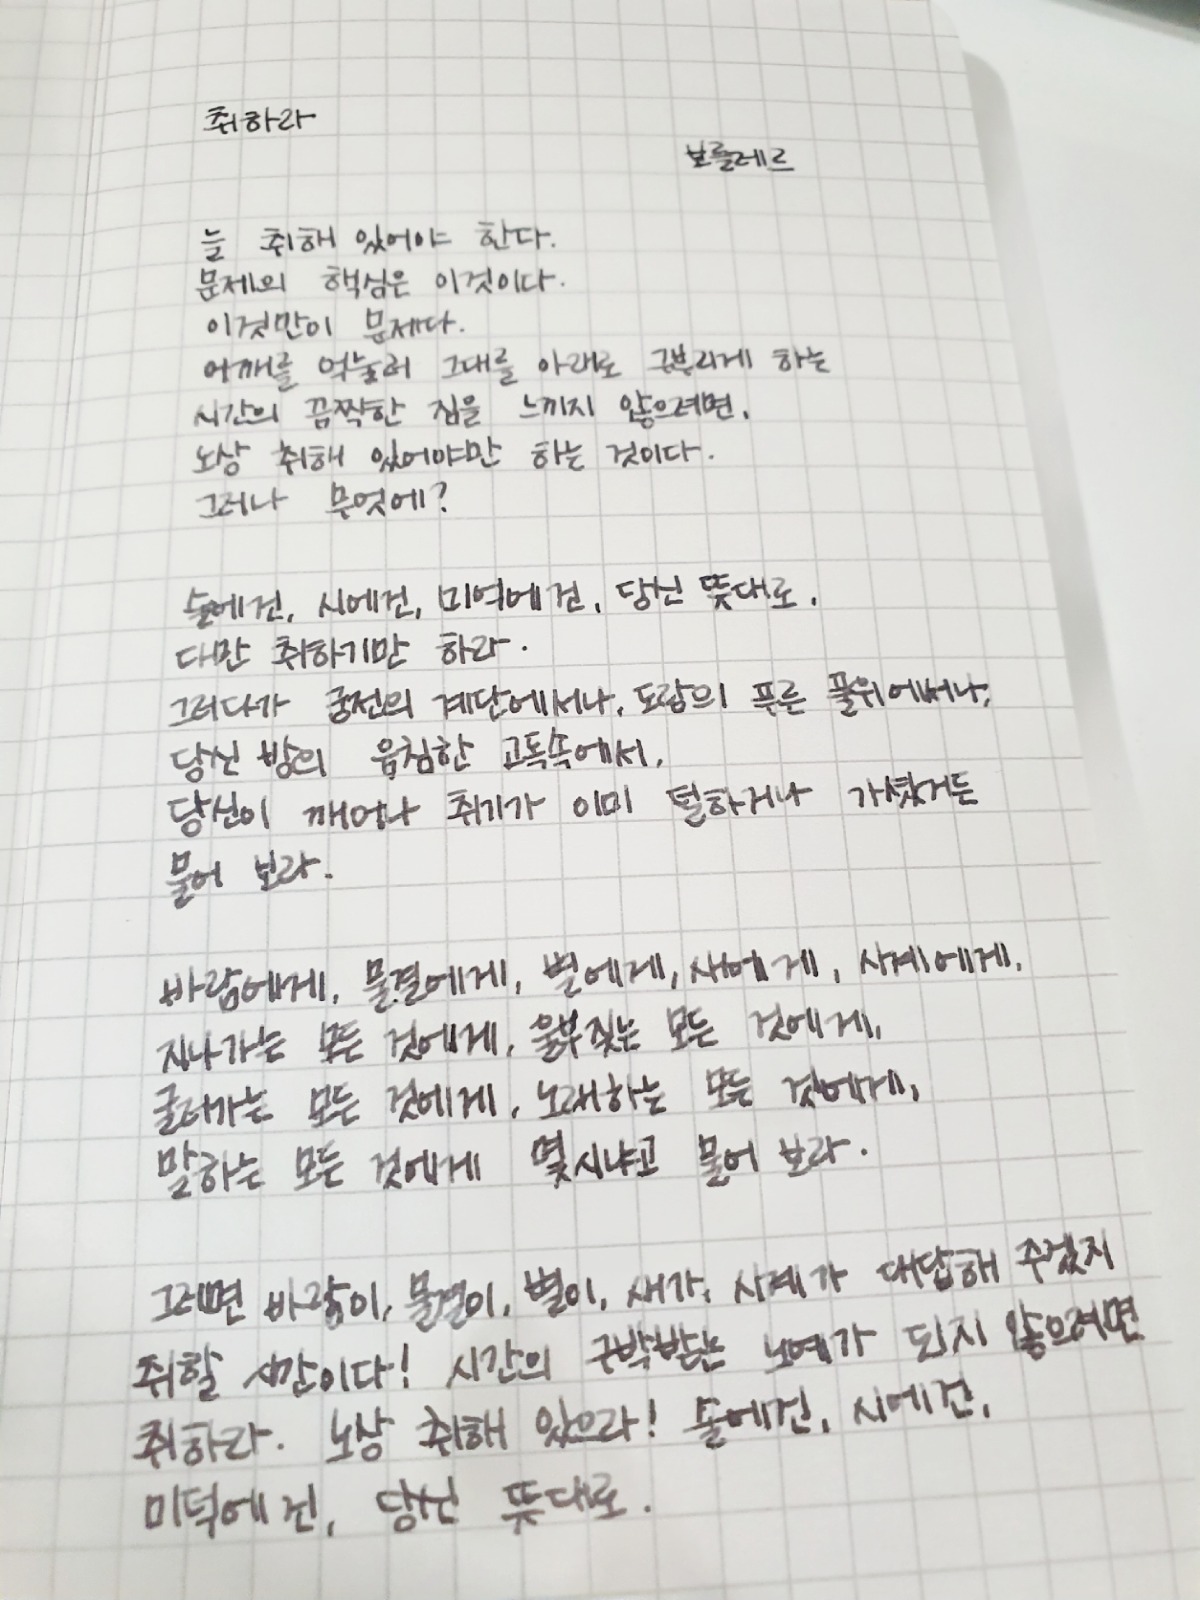 취하라
보들레르
늘 취해 있어야 한다.
문제의 핵심은 이것이다.
이것만이 문제다.
어깨를 억눌러 그대를 아래로 구부리게 하는
시간의 끔찍한 짐을 느끼지 않으려면,
노상 취해 있어야만 하는 것이다.
그러나 무엇에?
술에건, 시에건, 미덕에건, 당신 뜻대로,
다만 취하기만 하라.
그러다가 궁전의 계단에서나, 도랑의 푸른 풀위에서나,
당신 방의 음침한 고독속에서,
당신이 깨어나 취기가 이미 덜하거나 가셨거든
물어 보라.
바람에게, 물결에게, 별에게, 새에게, 시계에게,
지나가는 모든 것에게, 울부짖는 모든 것에게,
굴러가는 모든 것에게, 노래하는 모든 것에게,
말하는 모든 것에게 몇시냐고 물어 보라.
그러면 바람이, 물결이, 별이, 새가, 시계가 대답해 주겠지
취할 시간이다! 시간의 구박받는 노예가 되지 않으려면
취하라. 노상 취해 있으라! 술에건, 시에건,
미덕에건, 당신 뜻대로.